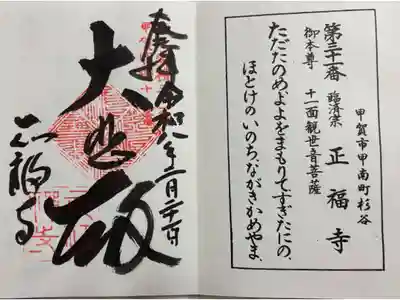 甲賀市甲南町杉谷
第三十一番 臨済宗 正福寺
御本尊 十一面観世音菩薩
ただたのめ、よよをまもりてすぎたにの、
ほとけのいのち、ながきかめやま、
奉拝 令和八年二月二十一日
大悲殿
正福寺